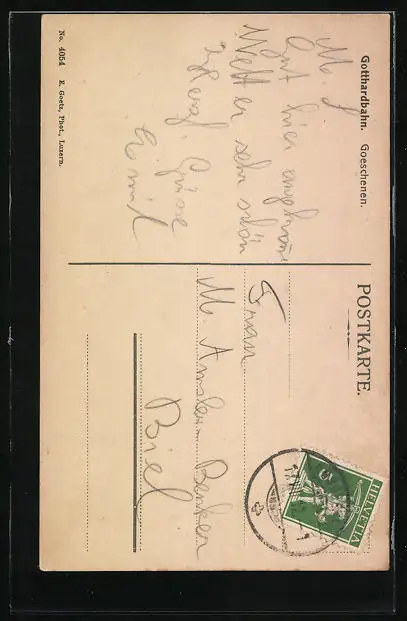 Gotthardbahn. Goeschenen.
M. L
Gut hier angekom
Wetter sehr schön
Herzl. Grüsse
Emil
No. 4054 E. Goetz, Phot., Luzern.
POSTKARTE.
Frau
M. Amsler- Benker
Biel
HELVETIA
5